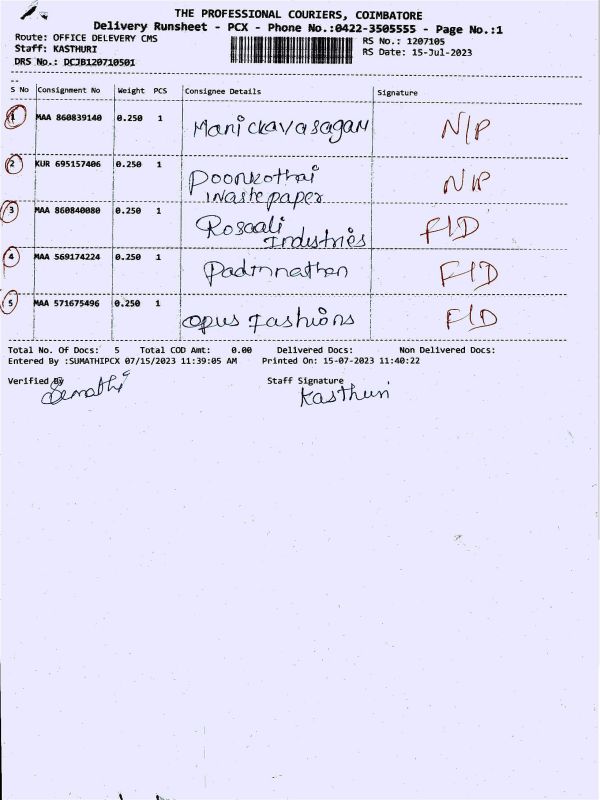 THE PROFESSIONAL COURIERS, COIMBATORE
Delivery Runsheet - PCX - Phone No.:0422-3505555 - Page No.:1
Route: OFFICE DELEVERY CMS RS No.: 1207105
Staff: KASTHURI RS Date: 15-Jul-2023
DRS No.: DCJB120710501
S No Consignment No Weight PCS Consignee Details Signature
1 MAA 860839140 0.250 1 Manickavasagam N/P
2 KUR 695157406 0.250 1 Poonkothai N/P
Wastepaper
3 MAA 860840080 0.250 1 Rosaali F/D
Industries
4 MAA 569174224 0.250 1 F/D
5 MAA 571675496 0.250 1 Opus Fashions F/D
Total No. Of Docs: 5 Total COD Amt: 0.00 Delivered Docs: Non Delivered Docs:
Entered By :SUMATHIPCX 07/15/2023 11:39:05 AM Printed On: 15-07-2023 11:40:22
Verified By Staff Signature
Kasthuri